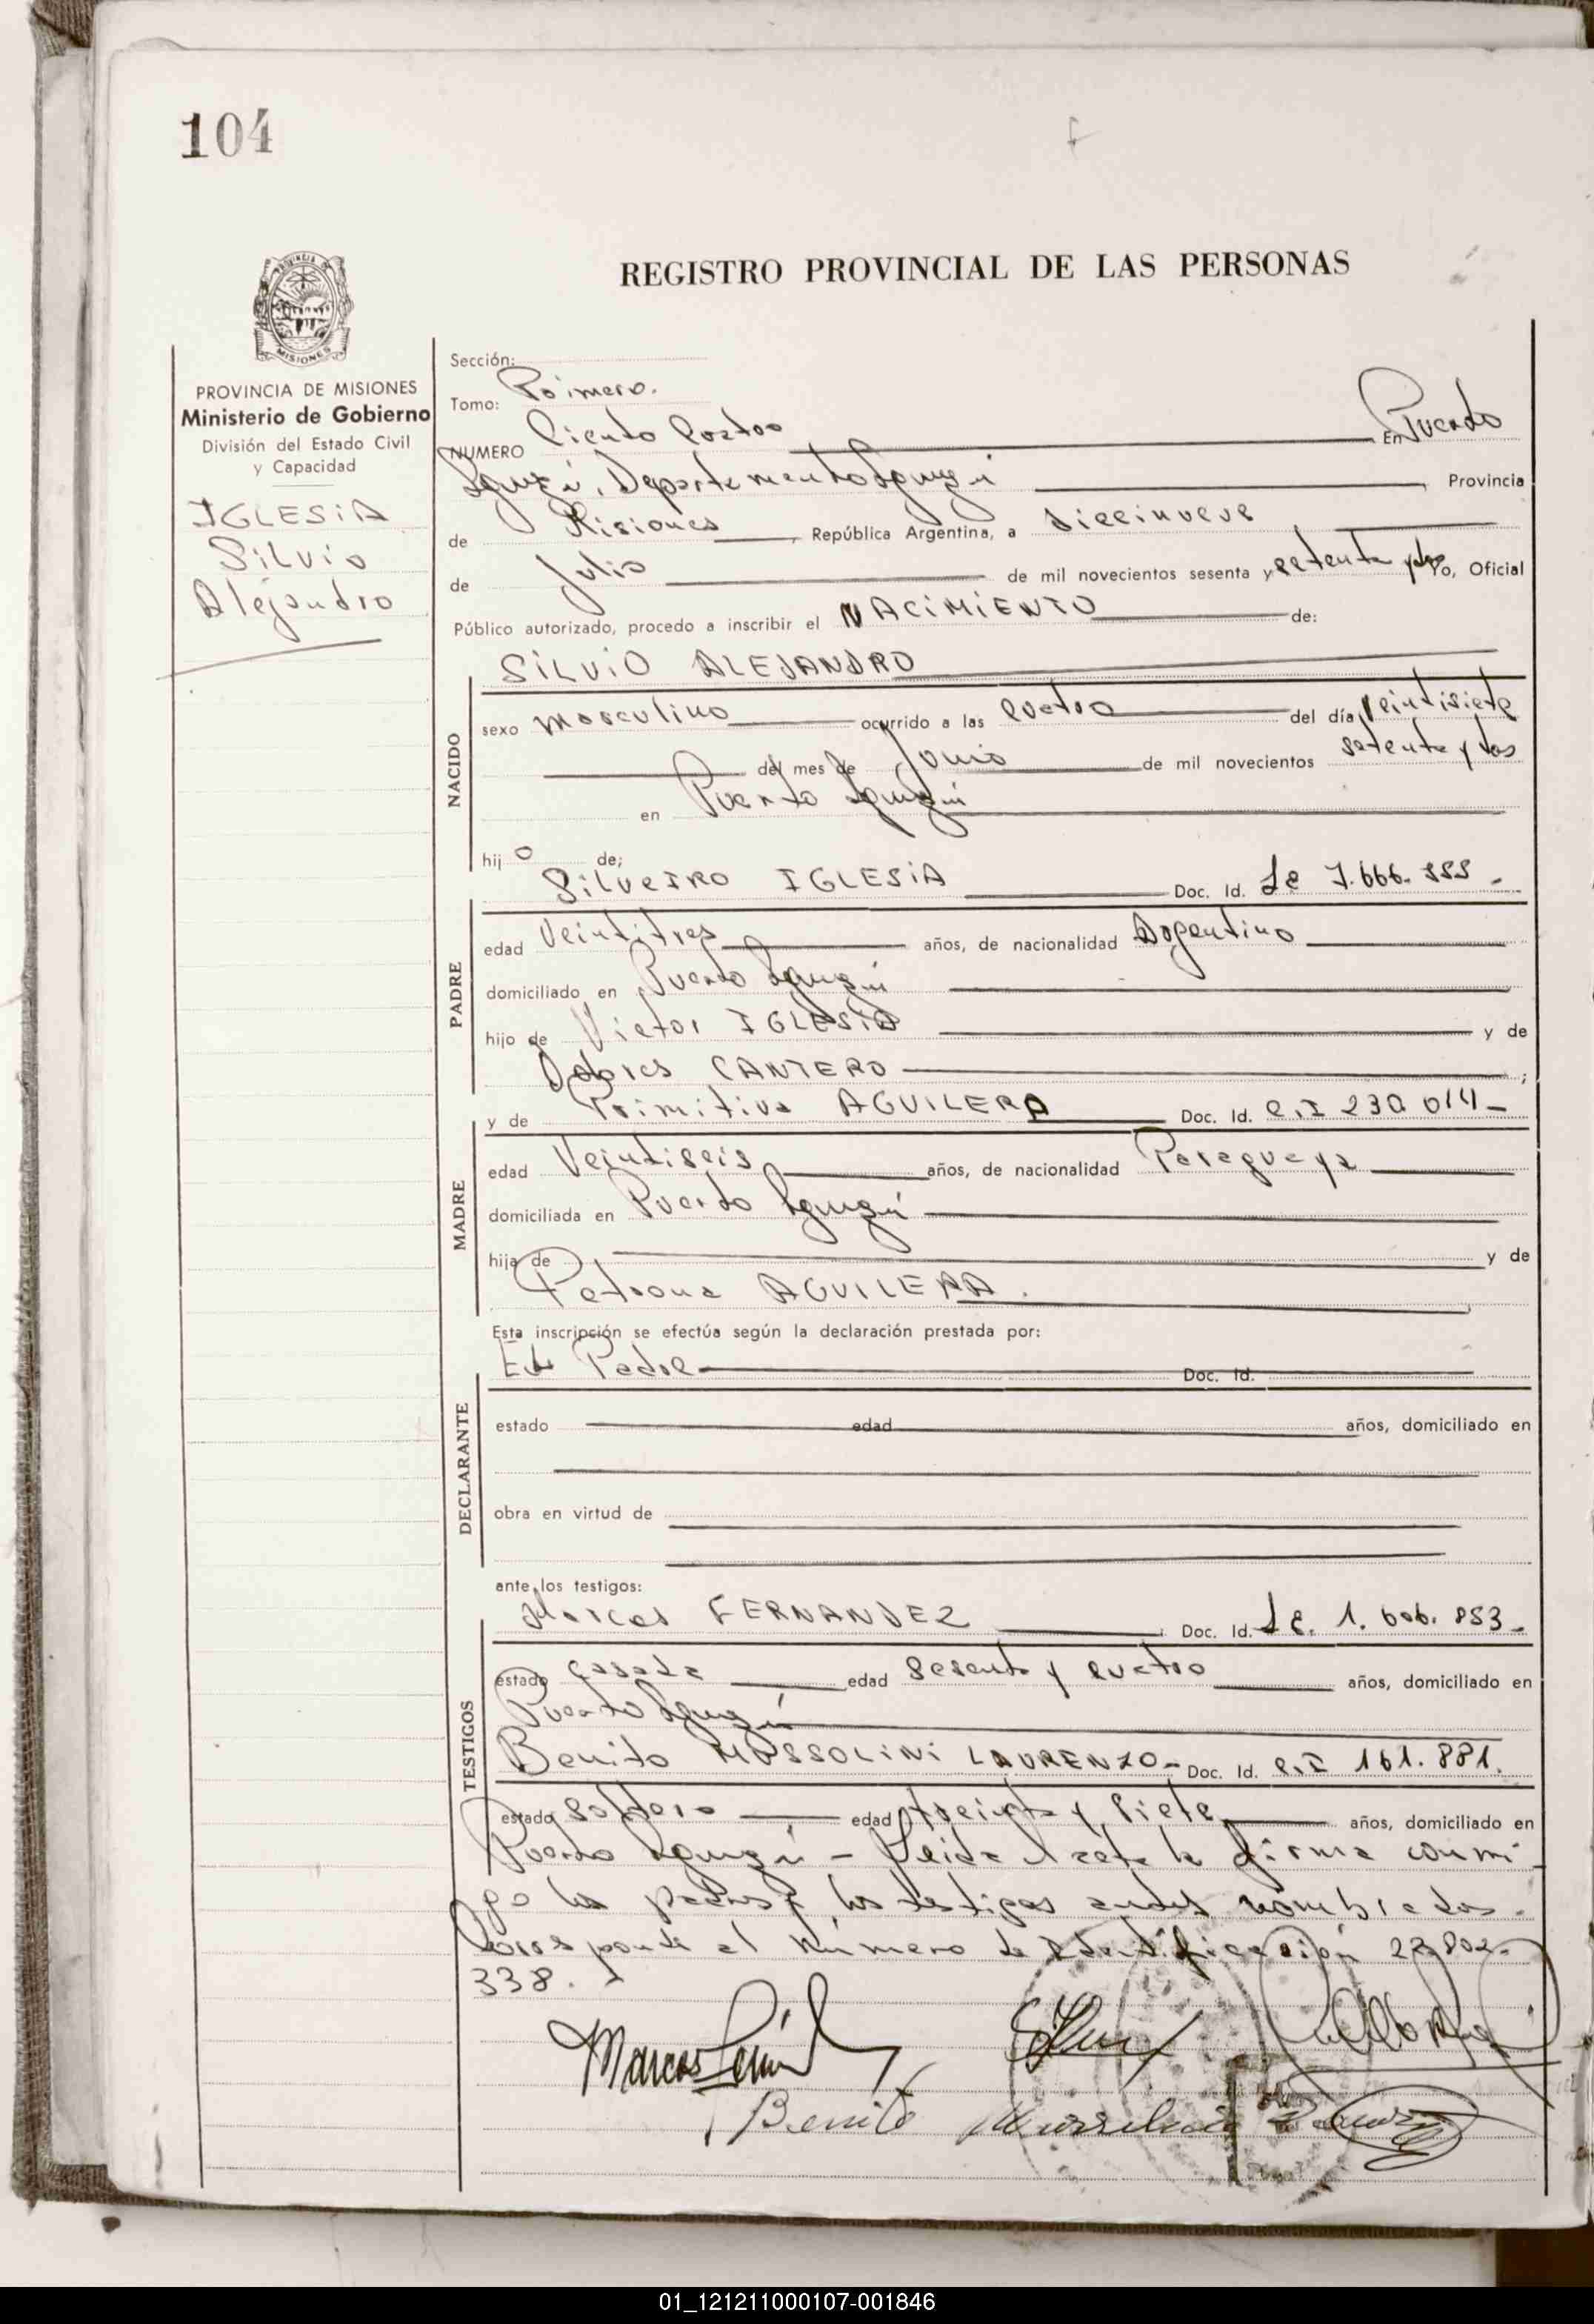 104
REGISTRO PROVINCIAL DE LAS PERSONAS
PROVINCIA DE MISIONES
Ministerio de Gobierno
División del Estado Civil
y Capacidad
IGLESIA
Silvio
Alejandro
Sección:
Tomo: Primero.
NUMERO Ciento Cuatro En Puerto
Iguazú, Departamento Iguazú Provincia
de Misiones, República Argentina, a diecinueve
de Julio de mil novecientos sesenta y setenta y dos Yo, Oficial
Público autorizado, procedo a inscribir el NACIMIENTO de:
SILVIO ALEJANDRO
NACIDO
sexo masculino ocurrido a las cuatro del día veintisiete
del mes de Junio de mil novecientos setenta y dos
en Puerto Iguazú
hijo de;
SILVEIRO IGLESIA Doc. Id. Le 7.666.
PADRE
edad Veintitres años, de nacionalidad Argentino
domiciliado en Puerto Iguazú
hijo de Victor IGLESIA y de
Dolores CANTERO ;
y de Primitiva AGUILERA Doc. Id. C.I 230 014-
MADRE
edad Veintiseis años, de nacionalidad Paraguaya
domiciliada en Puerto Iguazú
hija de y de
Petrona AGUILERA.
Esta inscripción se efectúa según la declaración prestada por:
El Padre Doc. Id.
DECLARANTE
estado edad años, domiciliado en
obra en virtud de
ante los testigos:
Marcos FERNANDEZ Doc. Id. Le. 1. 606. 853-
TESTIGOS
estado casado edad sesenta y cuatro años, domiciliado en
Puerto Iguazú
Benito MUSSOLINI LAURENZO- Doc. Id. C.I 161.881.
estado soltero edad treinta y siete años, domiciliado en
Puerto Iguazú - Leida el acta la firma conmi
go los padres y los testigos antes nombrados.
Corresponde al número de identificación 22.802.
338.
Marcos
Benito Mussolini
01_121211000107-001846